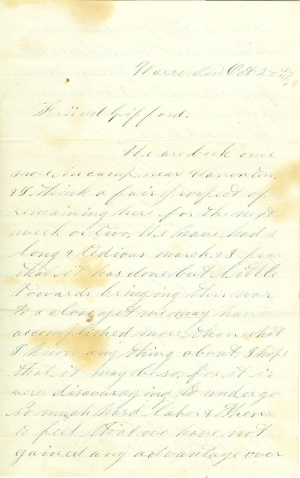 Warrenton Oct 25th
Friend Gifford.
We are back once
more in camp near Warrenton
& I think a fair prospect of
remaining here for the next
week or two. We have had a
long & tedious march & I fear
that it has done but little
towards bringing this war
to a close, yet we may have
accomplished more than what
I know any thing about. I hope
that it may be so, for it is
very discouraging to undergo
so much hard labor & then
to feel that we have not
gained any advantage over